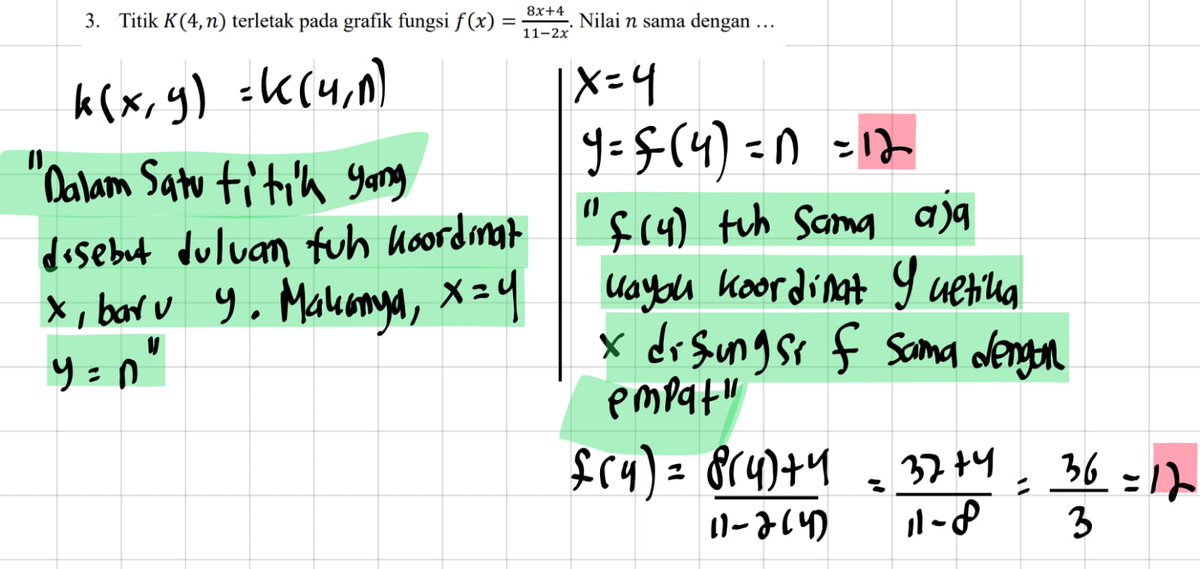 3. Titik K(4, n) terletak pada grafik fungsi f(x) = (8x+4)/(11−2x). Nilai n sama dengan …
k(x, y) = k(4, n)
"Dalam Satu titik yang
disebut duluan tuh koordinat
x, baru y. Makanya, x=4
y = n"
x=4
y = f(4) = n = 12
"f(4) tuh Sama aja
kayak koordinat y ketika
x difungsi f sama dengan
empat"
f(4) = (8(4)+4)/(11−2(4)) = (32+4)/(11−8) = 36/3 = 12